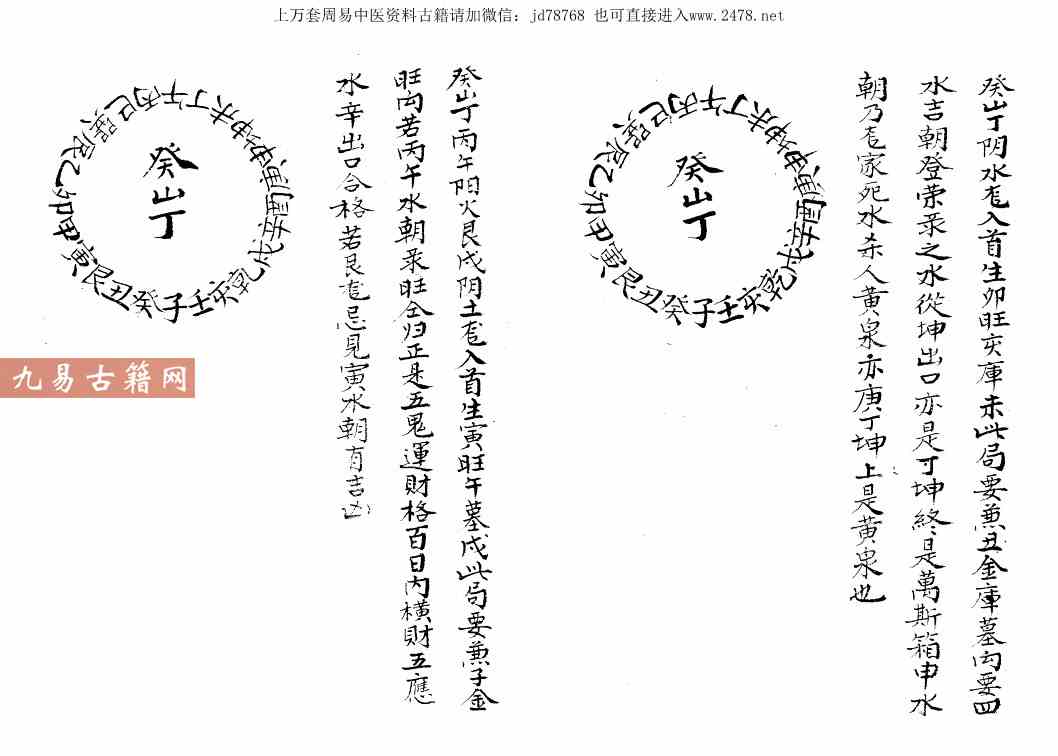 上万套周易中医资料古籍请加微信：jd78768 也可直接进入www.2478.net
癸山丁阴水龙入首生卯旺亥庫未此局要兼丑金庫墓内要四
水吉朝登荣录之水從坤出口亦是丁坤終是萬斯箱申水
朝乃龙家死水杀人黄泉亦庚丁坤上是黄泉也
癸山丁
巽巳丙午丁未坤申庚酉辛戌乾亥壬子癸丑艮寅甲卯乙辰
癸山丁丙午阳火艮戌阴土龙入首生寅旺午墓戌此局要兼子金
旺内若丙午水朝录旺仝归正是五鬼運財格百日内横財五應
水辛出口合格若艮龙忌見寅水朝有吉凶
癸山丁
巽巳丙午丁未坤申庚酉辛戌乾亥壬子癸丑艮寅甲卯乙辰
九易古籍网